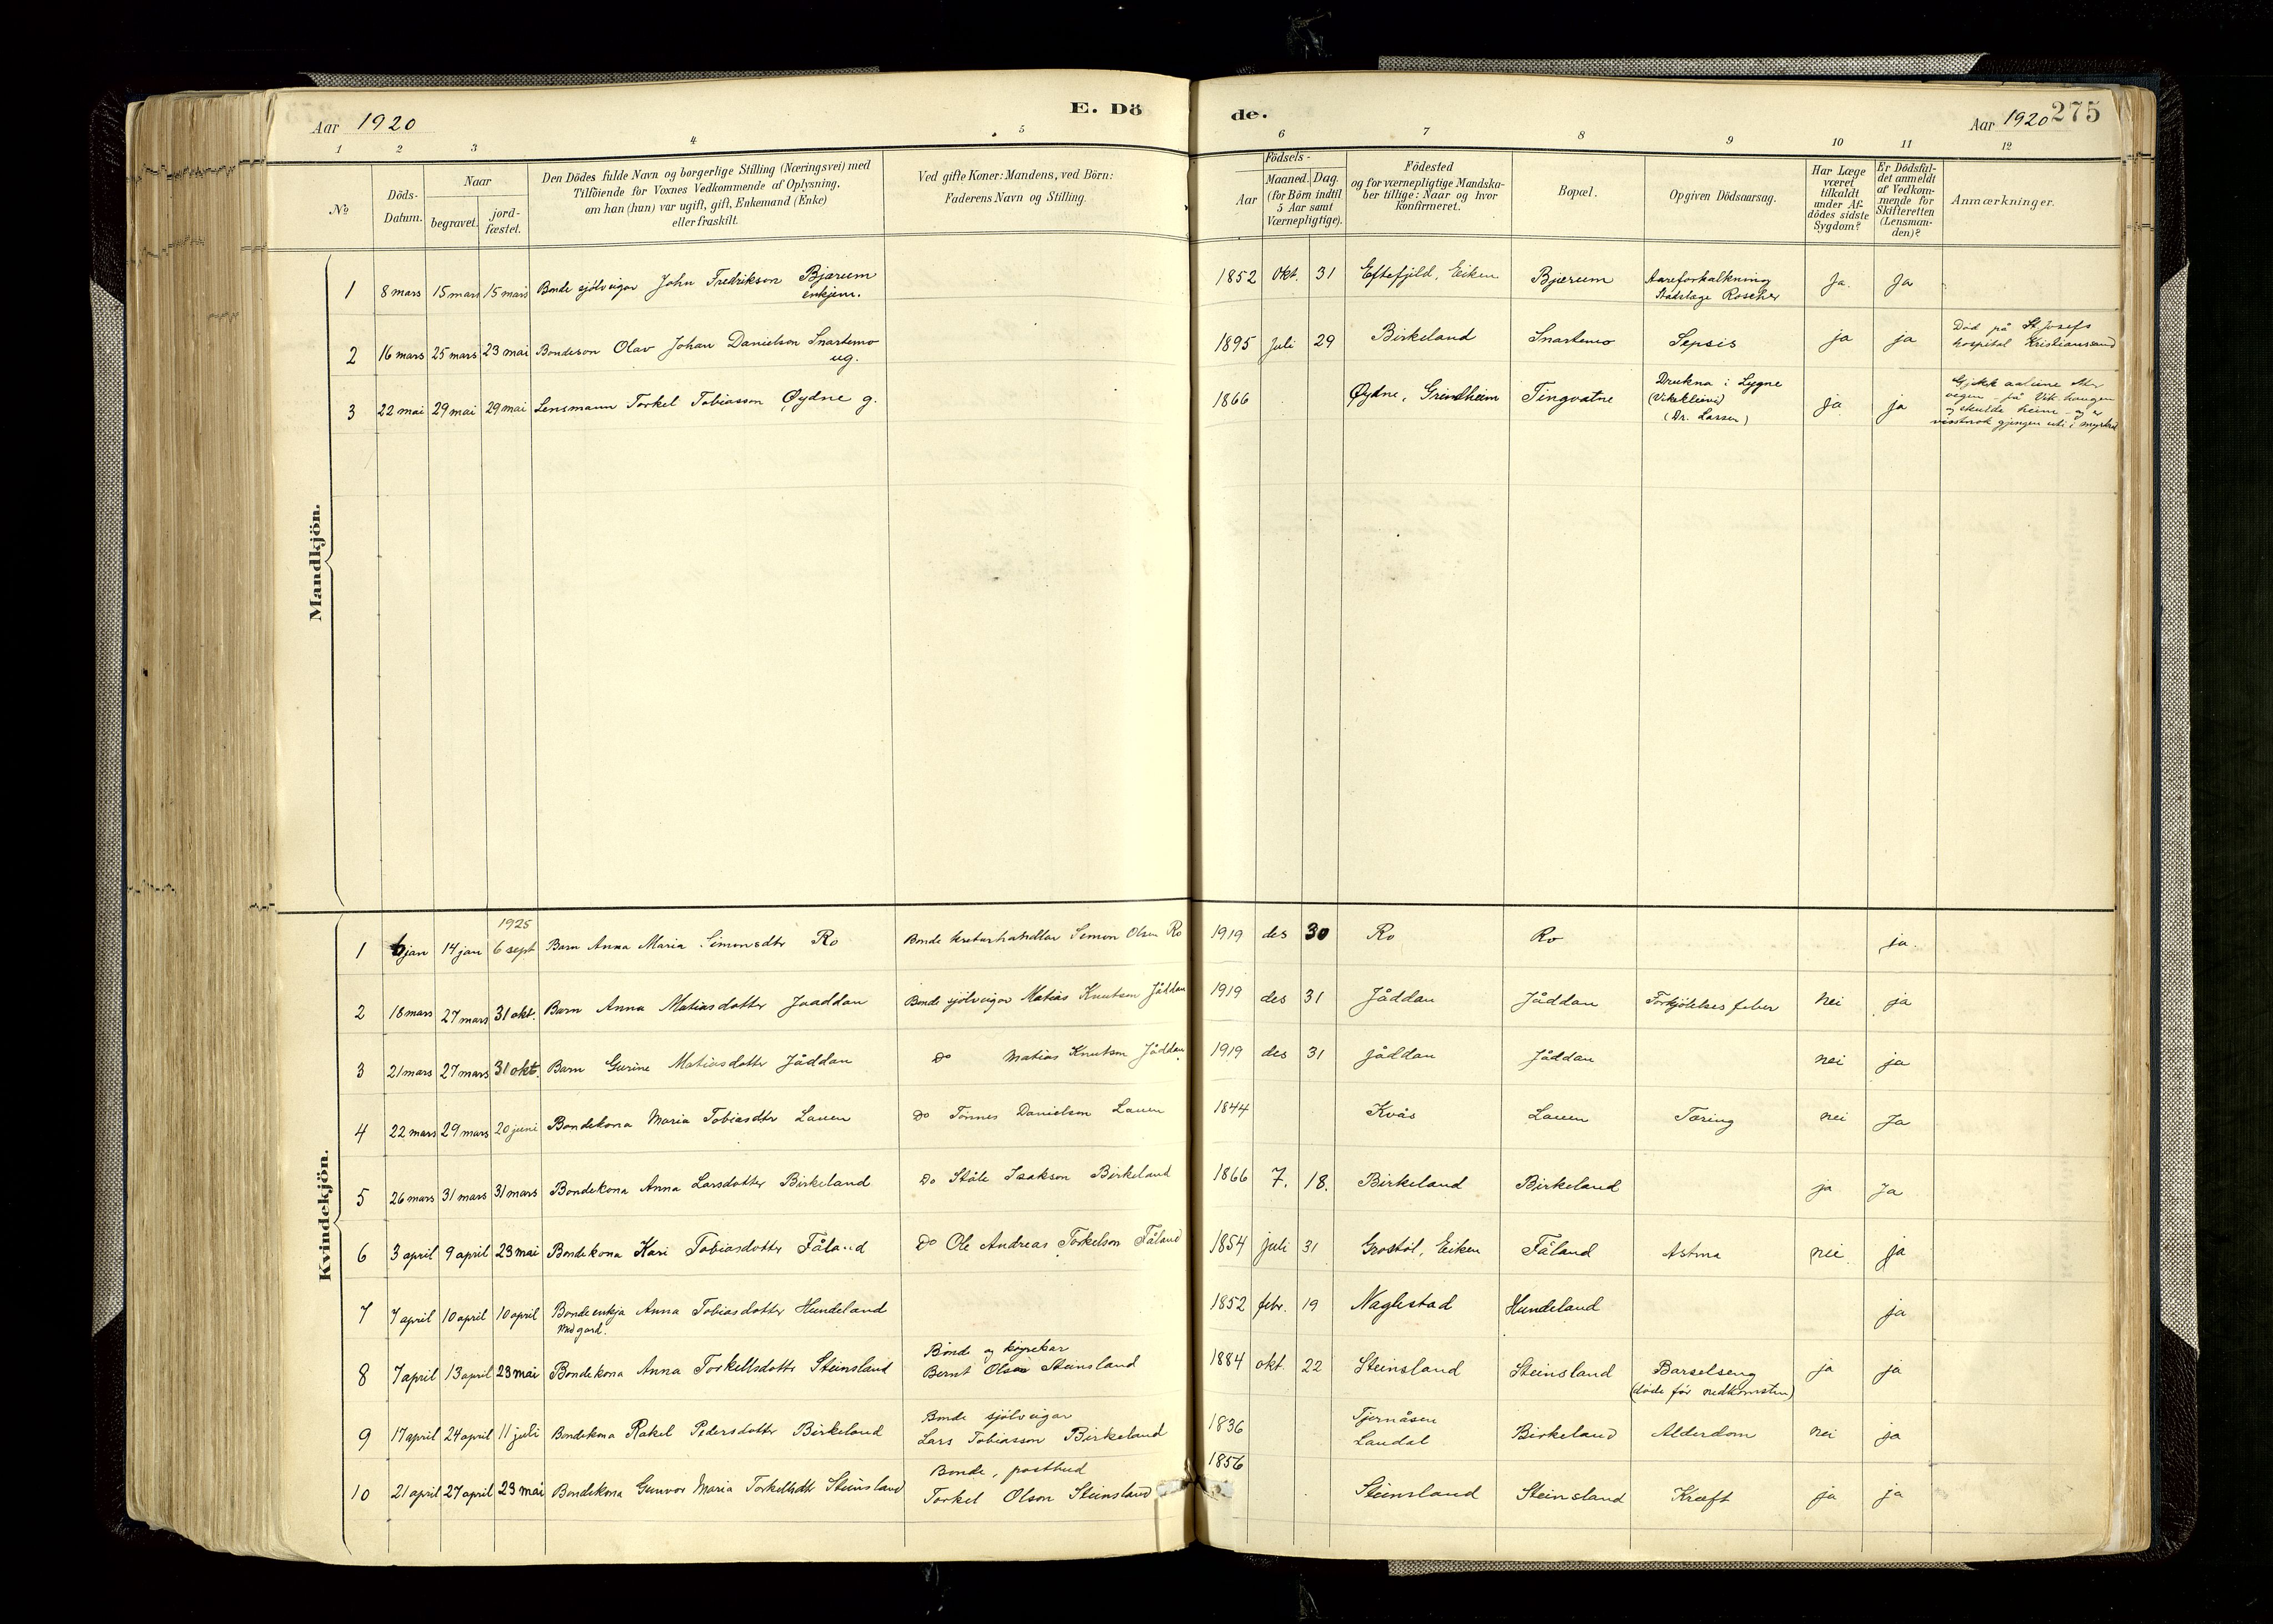 Aar 1920
E. Dö
de.
Aar 1920
275
1 2 3 4 5 6 7 8 9 10 11 12
No
Döds-
Datum.
Naar
begravet.
jord-
fæstet.
Den Dödes fulde Navn og borgerlige Stilling (Næringsvei) med
Tilföiende for Voxnes Vedkommende af Oplysning,
om han (hun) var ugift, gift, Enkemand (Enke)
eller fraskilt.
Ved gifte Koner: Mandens, ved Börn:
Faderens Navn og Stilling.
Födsels-
Aar
Maaned. Dag.
(for Börn indtil
5 Aar samt
Værnepligtige).
Födested
og for værnepligtige Mandska-
ber tillige: Naar og hvor
konfirmeret.
Bopæl.
Opgiven Dödsaarsag.
Har Læge
været
tilkaldt
under Af-
dödes sidste
Sygdom?
Er Dödsfal-
det anmeldt
af Vedkom-
mende for
Skifteretten
(Lensman-
den)?
Anmærkninger.
Mandkjön.
1 8 mars 15 mars 15 mars Bonde sjölveigar John Fredrikson Bjærum
enkjem. 1852 Okt. 31 Eftefjild, Eiken Bjærum Aareforkalkning
Stadslæge Roscher Ja. Ja
2 16 mars 25 mars 23 mai Bondeson Olav Johan Danielson Snartemo
ug. 1895 Juli 29 Birkeland Snartemo Sepsis ja ja Död på St. Josefs
hospital Kristianssand
3 22 mai 29 mai 29 mai Lensmann Torkel Tobiasson Øydne g. 1866 Øydne, Grindheim Tingvatne Drukna i Lygne
(Vikekleivi)
(Dr. Larsen) ja ja Gjekk aaleine etter
vegen på Vik-haugen
og skulde heim - og er
visstnok gjengen uti i myrkret
Kvindekjön.
1925
1 6 jan 14 jan 6 sept Barn Anna Maria Simonsdtr Ro Bonde kreturhandlar Simon Olsen Ro 1919 des 30 Ro Ro ja.
2 18 mars 27 mars 31 okt. Barn Anna Matiasdotter Jaaddan Bonde sjölveigar Matias Knutson Jåddan 1919 des 31 Jåddan Jåddan Forkjölelsesfeber nei ja
3 21 mars 27 mars 31 okt. Barn Gurine Matiasdottr Jåddan Do Matias Knutson Jåddan 1919 des 31 Jåddan Jåddan nei ja
4 22 mars 29 mars 20 juni Bondekona Maria Tobiasdtr Lauen Do Tönnes Danielson Lauen 1844 Kvås Lauen Tæring nei Ja
5 26 mars 31 mars 31 mars Bondekona Anna Larsdotter Birkeland Do Ståle Isakson Birkeland 1866 7. 18. Birkeland Birkeland ja Ja
6 3 april 9 april 23 mai Bondekona Kari Tobiasdottr Fåland Do Ole Andreas Torkelson Fåland 1854 juli 31 Grostöl, Eiken Fåland Astma nei ja
7 7 april 10 april 10 april Bondeenkja Anna Tobiasdotter Hundeland
Med gard. 1852 febr. 19 Naglestad Hundeland ja
8 7 april 13 april 23 mai Bondekona Anna Torkellsdottr Steinsland Bonde og köyrekar
Bernt Olson Steinsland 1884 okt. 22 Steinsland Steinsland Barselseng
(döde för nedkomsten) ja ja
9 17 april 24 april 11 juli Bondekona Rakel Pedersdotter Birkeland Bonde sjölveigar
Lars Tobiasson Birkeland 1836 Tjernåsen
Laudal Birkeland Alderdom nei ja
10 21 april 27 april 23 mai Bondekona Gunvor Maria Torkelsdtr Steinsland Bonde, postbud
Torkel Olson Steinsland 1856 Steinsland Steinsland Kræft ja ja